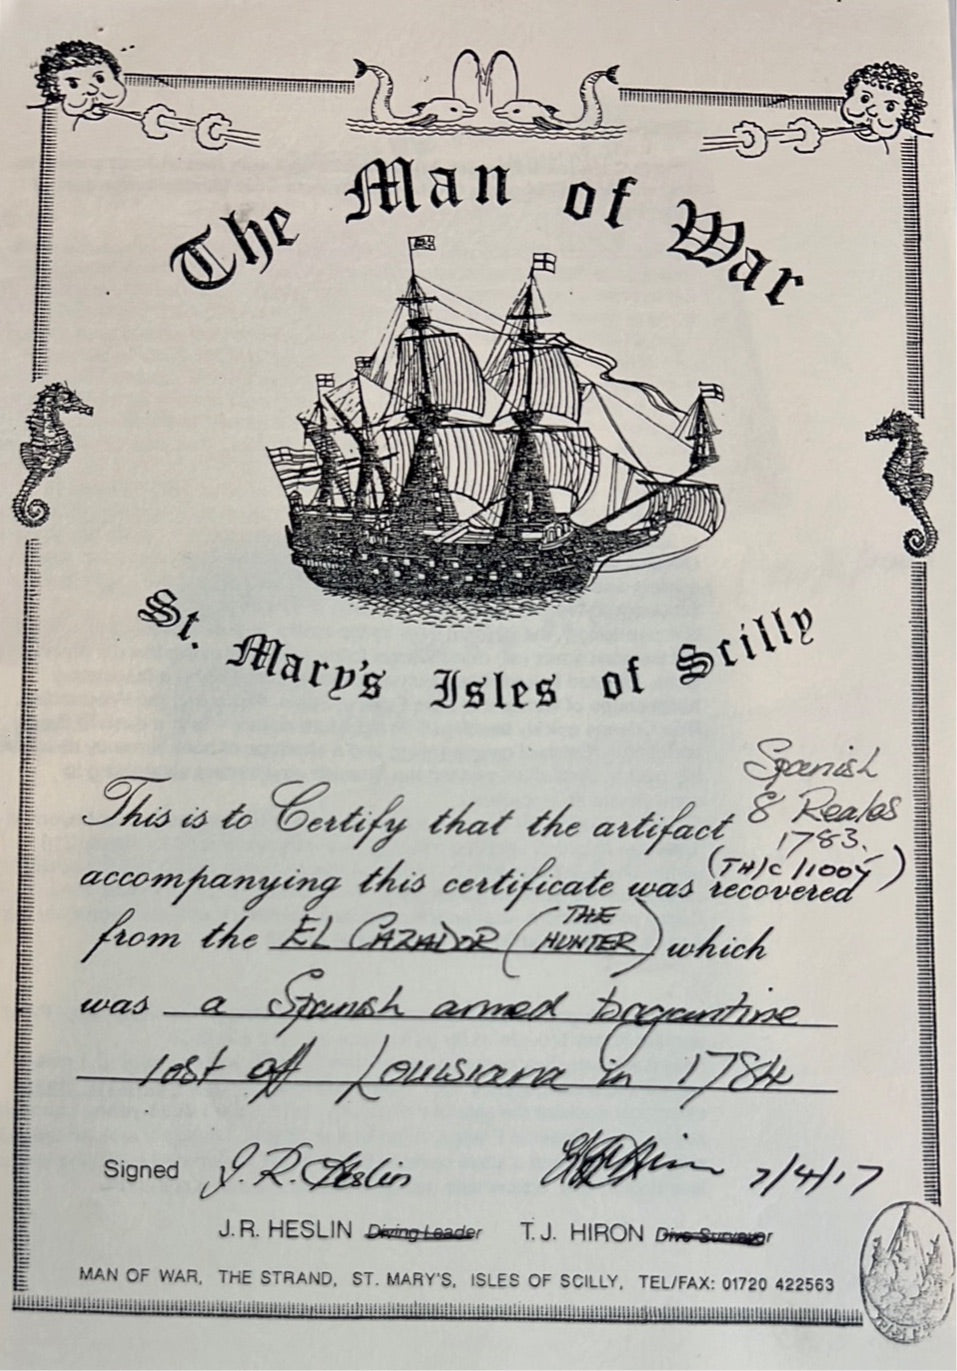 The Man of War
St. Mary's Isles of Scilly
Spanish
8 Reales
1783.
This is to Certify that the artifact
(TH/C/1005)
accompanying this certificate was recovered
from the EL CAZADOR (THE HUNTER) which
was a Spanish armed bragantine
lost off Louisiana in 1784
Signed J.R. Heslin 7/4/17
J.R. HESLIN Diving Leader T.J. HIRON Dive Surveyor
MAN OF WAR, THE STRAND, ST. MARY'S, ISLES OF SCILLY, TEL/FAX: 01720 422563